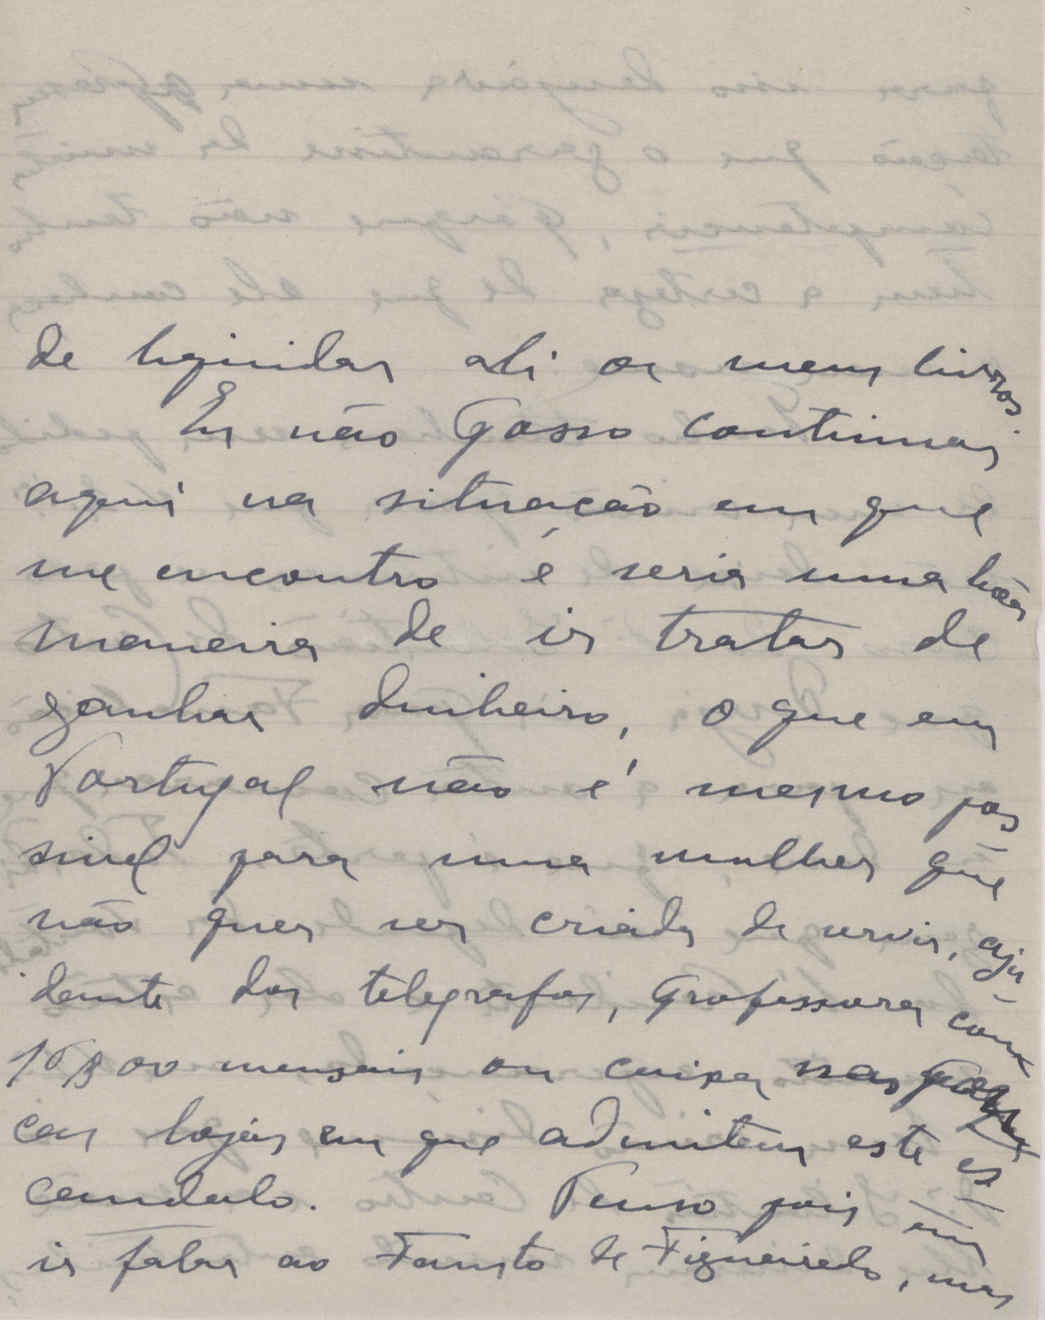 de liquidar ali os meus livros.
Eu não posso continuar
aqui na situação em que
me encontro e seria uma bôa
maneira de ir tratar de
ganhar dinheiro, o que em
Portugal não é mesmo pos-
sivel para uma mulher que
não quer ser criada de servir, aju-
danta dos telegrafos, professora com
10$00 mensais ou caixa nas poucas
cas lojas em que admitem este es-
candalo. Penso pois em
ir falar ao Fausto de Figueiredo, mas